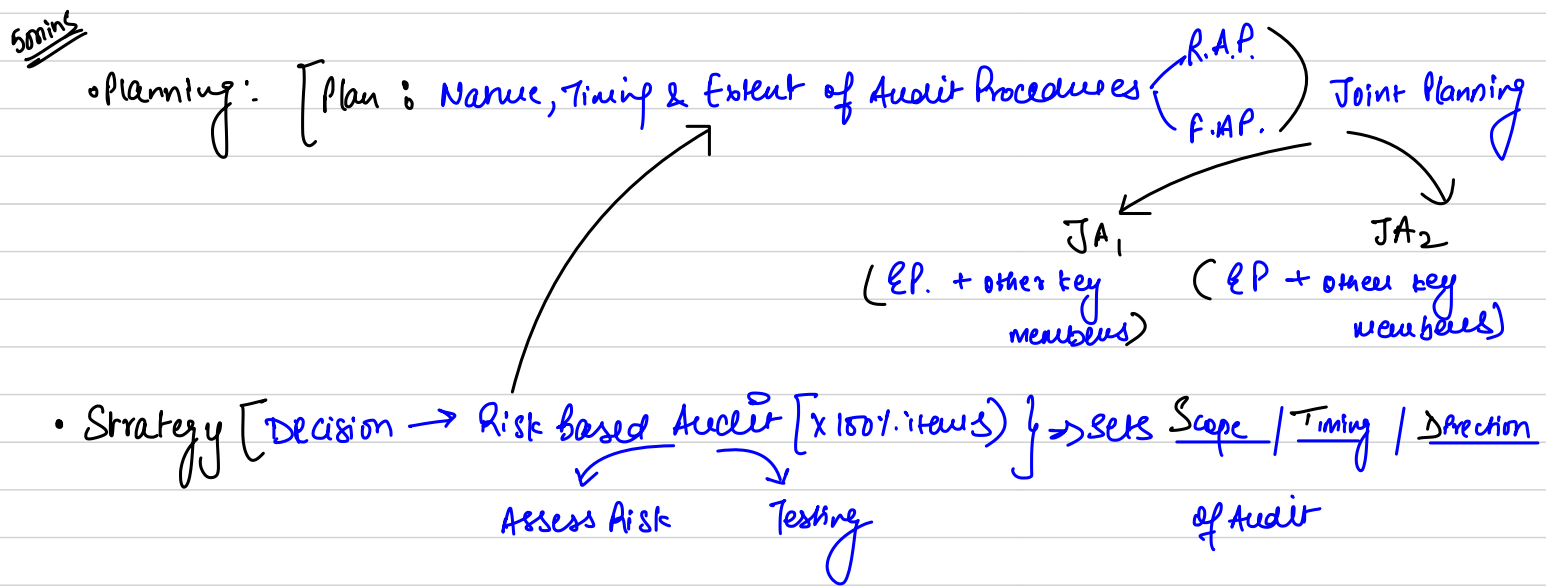 50mins
• Planning: [Plan : Nature, Timing & Extent of Audit Procedures
R.A.P.
F.AP.
Joint Planning
JA1
(EP. + other key
members)
JA2
(EP + other key
members)
• Strategy [Decision → Risk based Audit [x 100% items) } => sets Scope / Timing / Direction
of Audit
Assess Risk
Testing